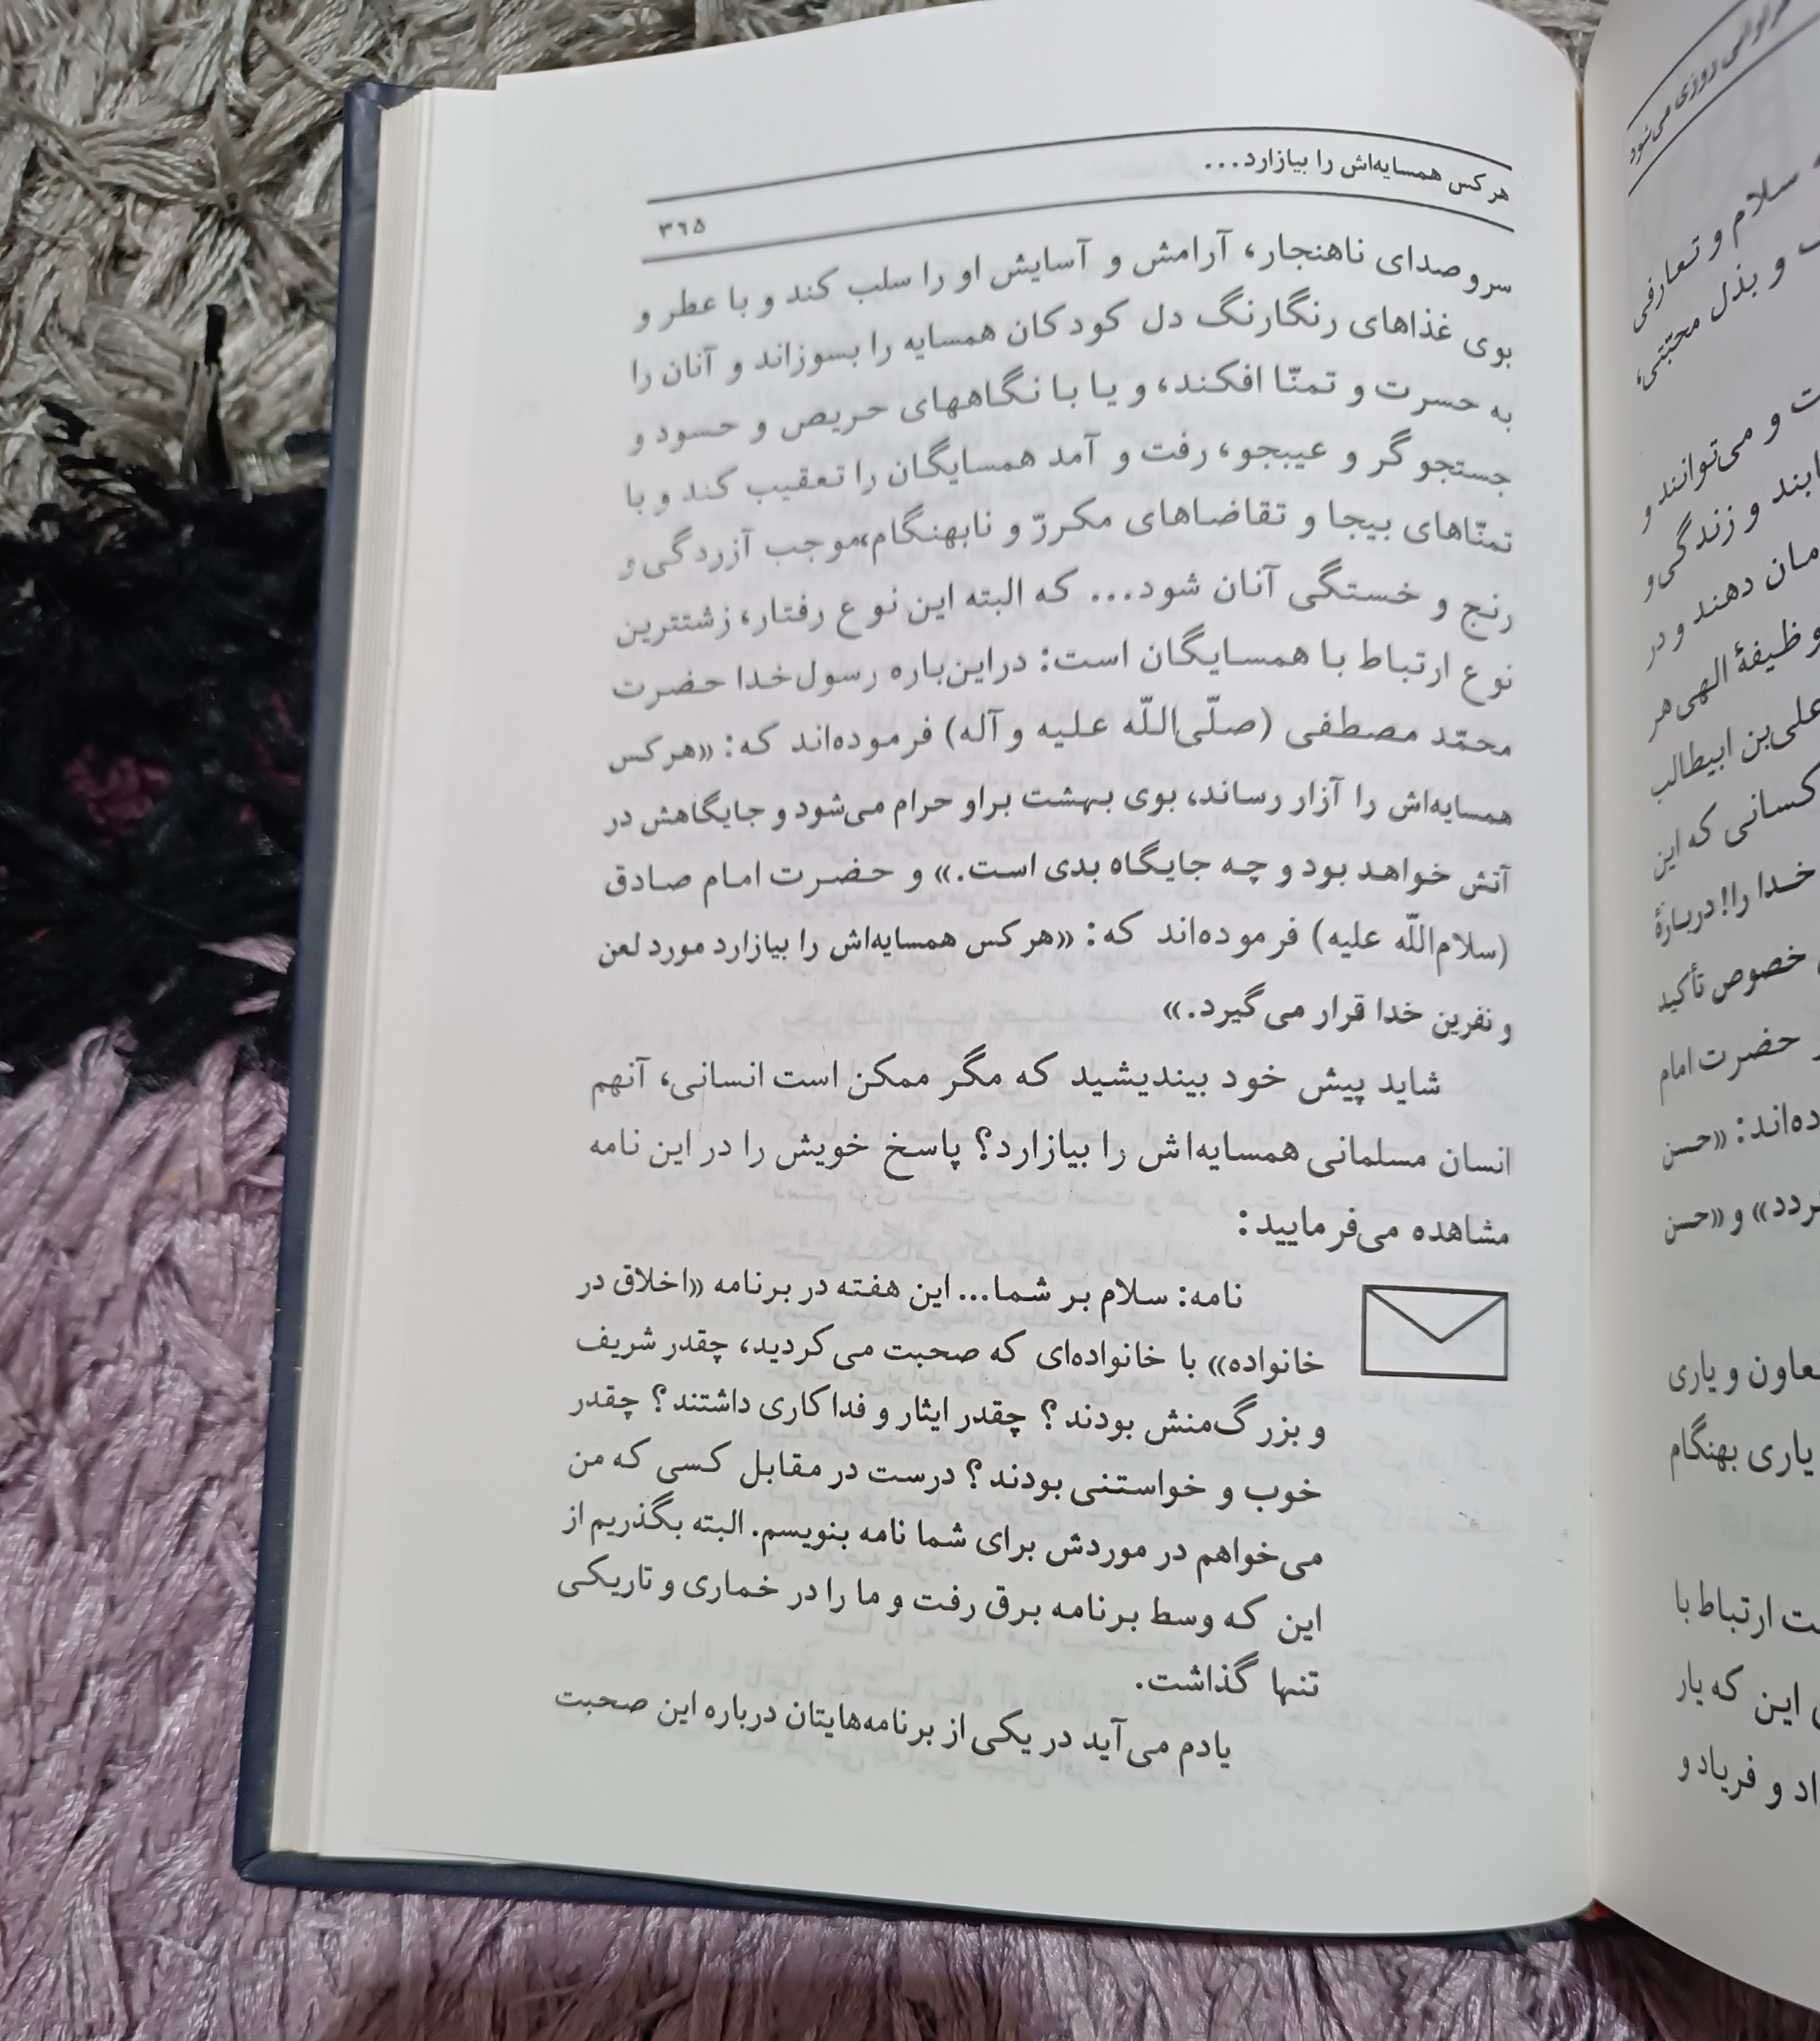 هرکس همسایه‌اش را بیازارد...
۳۶۵
سروصدای ناهنجار، آرامش و آسایش او را سلب کند و با عطر و
بوی غذاهای رنگارنگ دل کودکان همسایه را بسوزاند و آنان را
به حسرت و تمنّا افکند، و یا با نگاههای حریص و حسود و
جستجوگر و عیبجو، رفت و آمد همسایگان را تعقیب کند و با
تمنّاهای بیجا و تقاضاهای مکررّ و نابهنگام،موجب آزردگی و
رنج و خستگی آنان شود... که البته این نوع رفتار، زشتترین
نوع ارتباط با همسایگان است: دراین‌باره رسول‌خدا حضرت
محمّد مصطفی (صلّی‌اللّه علیه و آله) فرموده‌اند که: «هرکس
همسایه‌اش را آزار رساند، بوی بهشت براو حرام می‌شود و جایگاهش در
آتش خواهد بود و چه جایگاه بدی است.» و حضرت امام صادق
(سلام‌اللّه علیه) فرموده‌اند که: «هرکس همسایه‌اش را بیازارد مورد لعن
و نفرین خدا قرار می‌گیرد.»
شاید پیش خود بیندیشید که مگر ممکن است انسانی، آنهم
انسان مسلمانی همسایه‌اش را بیازارد؟ پاسخ خویش را در این نامه
مشاهده می‌فرمایید:
نامه: سلام بر شما... این هفته در برنامه «اخلاق در
خانواده» با خانواده‌ای که صحبت می‌کردید، چقدر شریف
و بزرگ‌منش بودند؟ چقدر ایثار و فداکاری داشتند؟ چقدر
خوب و خواستنی بودند؟ درست در مقابل کسی که من
می‌خواهم در موردش برای شما نامه بنویسم. البته بگذریم از
این که وسط برنامه برق رفت و ما را در خماری و تاریکی
تنها گذاشت.
یادم می‌آید در یکی از برنامه‌هایتان درباره این صحبت
روزی می‌شود
سلام و تعارفی
و بذل محبّتی،
و می‌توانند و
و زندگی و
دهند و در
وظیفهٔ الهی هر
علی‌بن ابیطالب
کسانی که این
خدا را! دربارهٔ
خصوص تأکید
حضرت امام
«حسن
و «حسن
و یاری
یاری بهنگام
ارتباط با
این که یار
و فریاد و